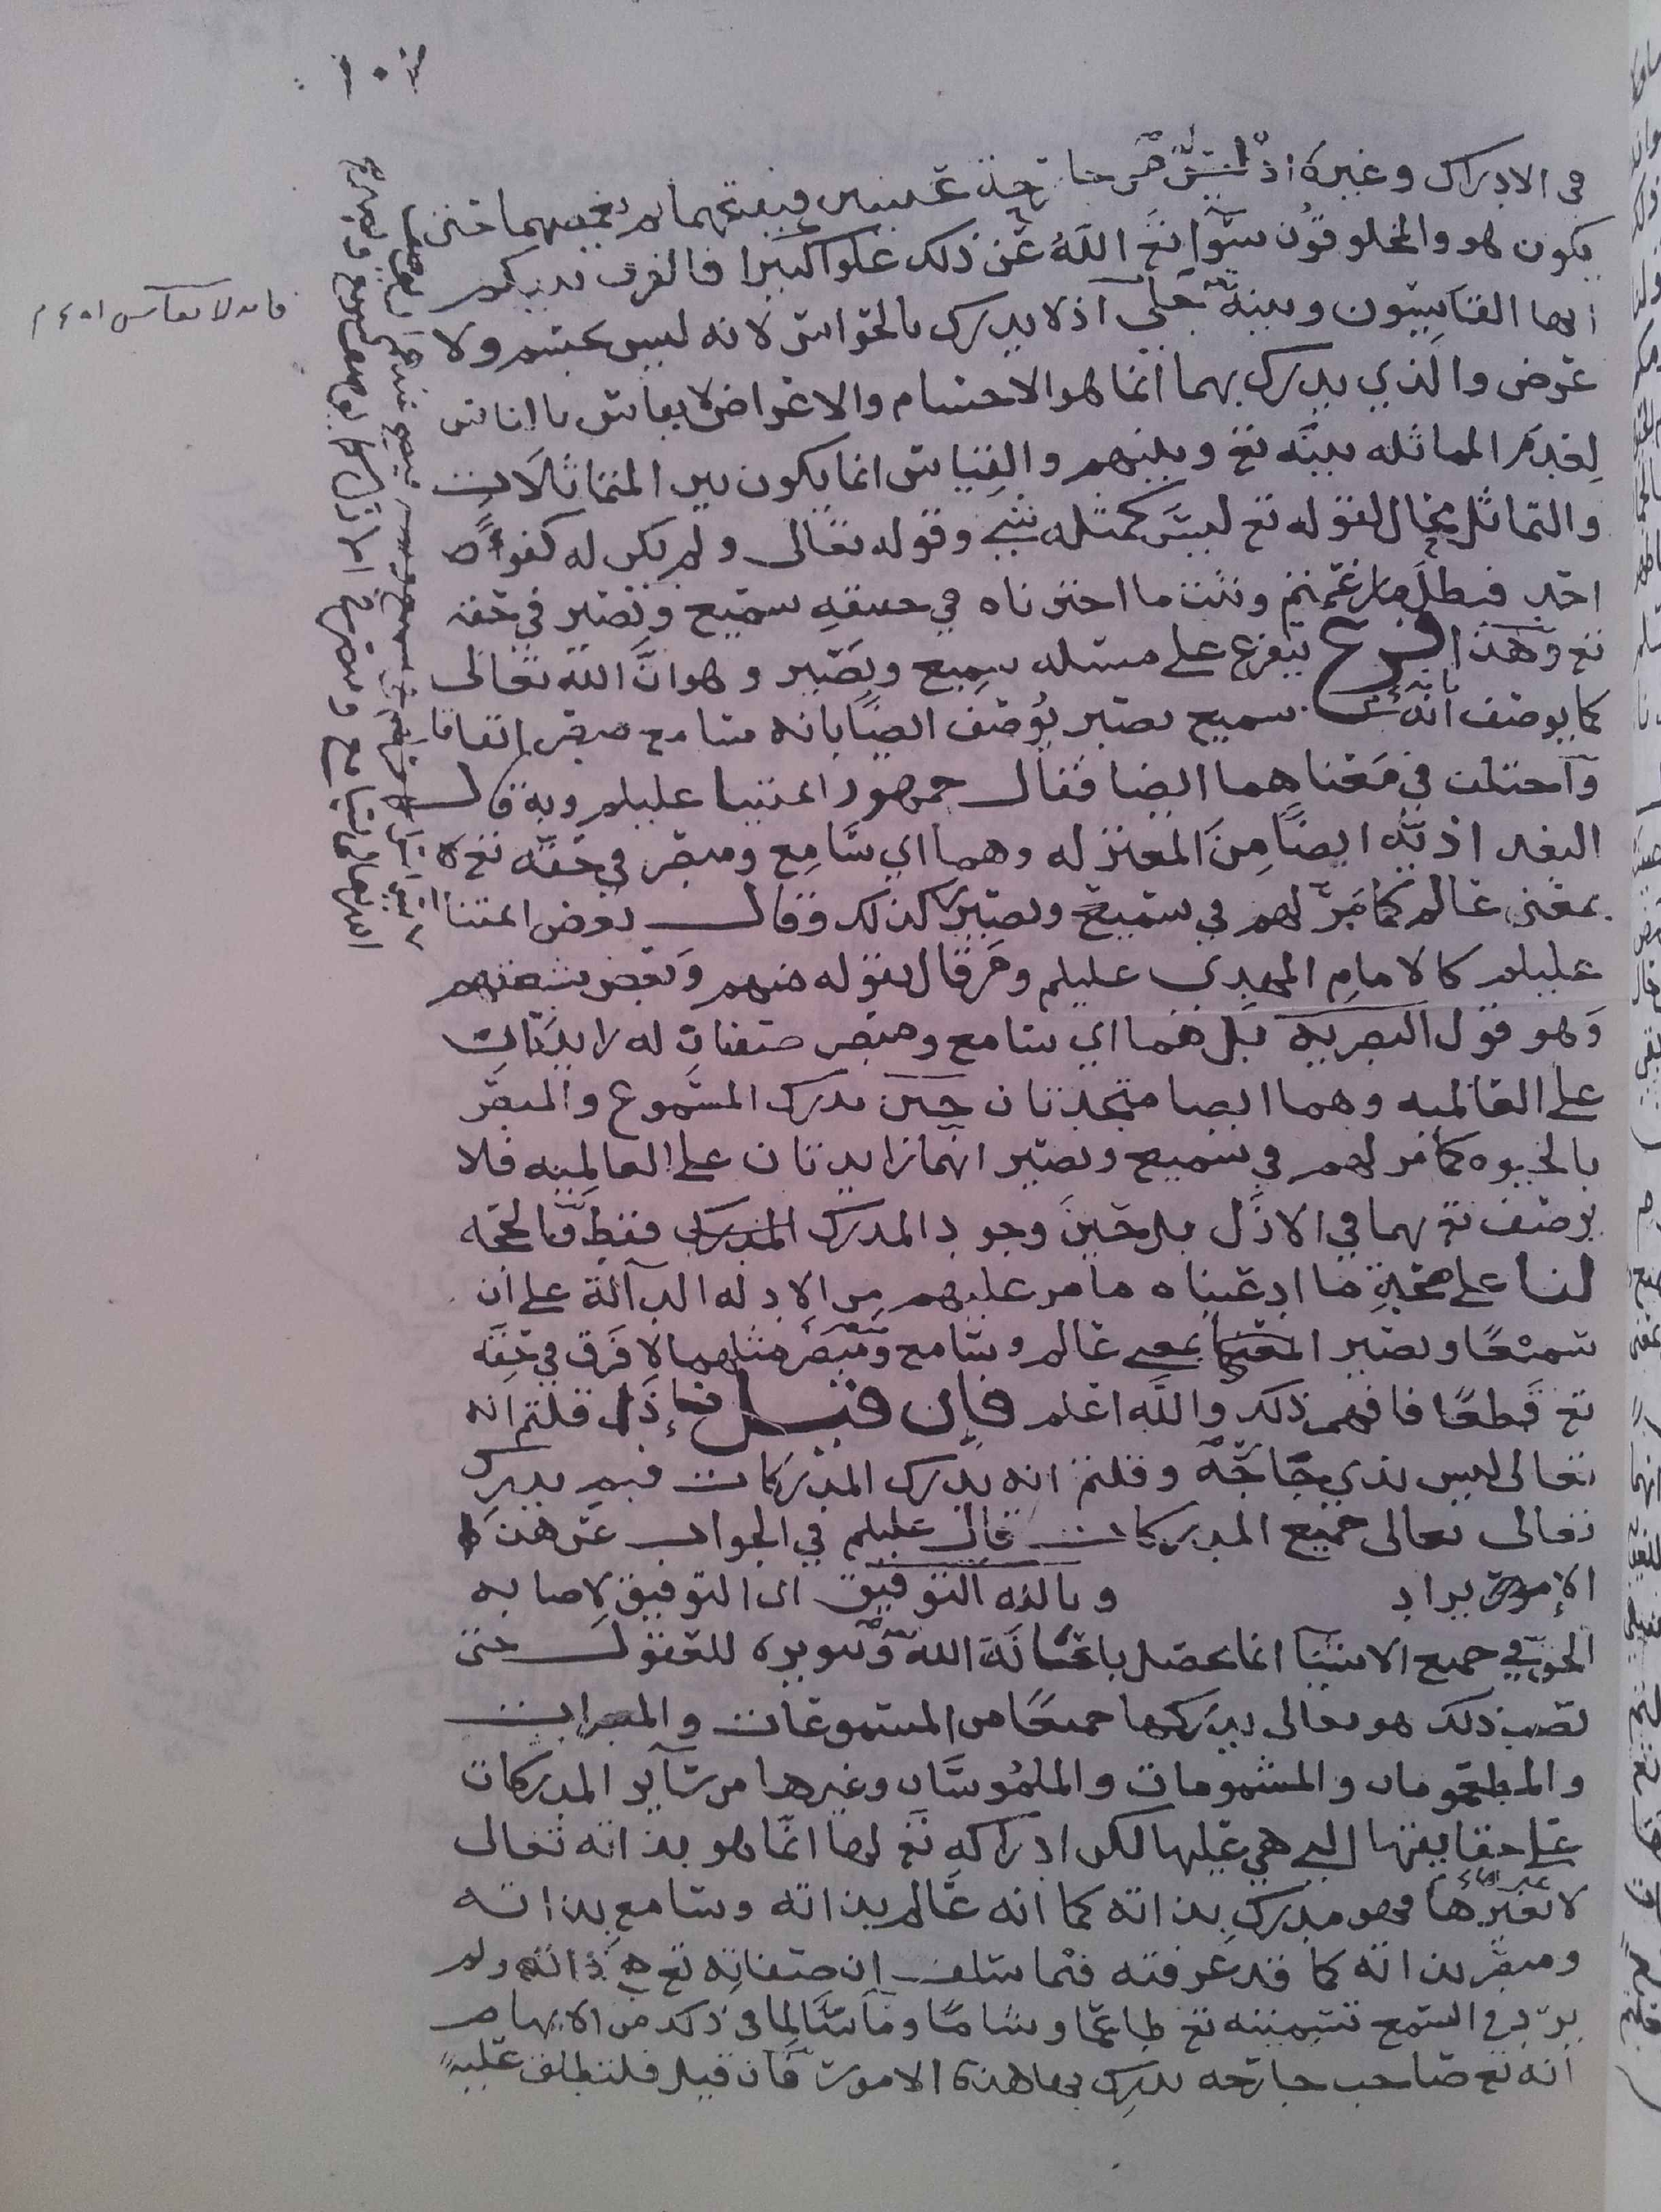 في الادراك وغيره اذ ليس هو جل
يكون هو والمخلوقون سوآ تع الله عن ذلك علوا كبيرا فالفرق بينكم
ايها القايسون وبينه جلي اذ لا يدرك بالحواس لانه ليس بجسم ولا
عرض والذي يدرك بهما انما هو الاجسام والاعراض لا يقاس بالناس
لعدم المماثله بينه تع وبينهم والقياس انما يكون بين المتماثلات
والتماثل محال لقوله تع ليس كمثله شي وقوله تعالى ولم يكن له كفوا
احد فبطل ما زعمتم وثبت ما اخترناه في سميع وبصير في حقه
تع وهذا فرع يتفرع على مسئله سميع وبصير وهو ان الله تعالى
كما يوصف بانه سميع بصير يوصف ايضا بانه سامع مبصر اتفاقا
واختلف في معناهما ايضا فقال جمهور ائمتنا عليلم وبه قال
البغداذيه ايضا من المعتزله وهما اي سامع ومبصر في حقه تع
بمعنى عالم كما مر لهم في سميع وبصير كذلك وقال بعض ائمتنا
عليلم كالامام المهدي عليلم ومن قال بقوله منهم وبعض شيعتهم
وهو قول البصريه بل هما اي سامع ومبصر صفتان له زايدتان
على العالميه وهما ايضا متجددتان حين يدرك المسموع والمبصر
بالحيوه كما مر لهم في سميع وبصير انهما زايدتان على العالميه فلا
يوصف تع بهما في الازل بل حين وجود المدرك فقط والحجه
لنا على صحة ما ادعيناه ما مر عليهم من الادله الدآلة على ان
سميعا وبصير بمعنى عالم وسامع ومبصر مثلهما لا فرق في حقه
تع قطعا فافهم ذلك والله اعلم فان قيل فاذا قلتم انه
تعالى ليس بذي جارحه وقلتم انه يدرك المدركات فبم يدرك
تعالى تعالى جميع المدركات قال عليلم في الجواب عن هذا
الايراد وبالله التوفيق اي التوفيق لاصابه
الحق في جميع الاشيا انما يحصل باعانة الله وتنويره للعقول حتى
تصيب ذلك هو تعالى يدركها جميعا من المسموعات والمبصرات
والمطعومات والمشمومات والملموسات وغيرها من سآير المدركات
على حقايقها التي هي عليها لكن ادراكه تع لها انما هو بذاته تعالى
لا بغيرها فهو مدرك بذاته كما انه عالم بذاته وسامع بذاته
ومبصر بذاته كما قد عرفته فيما سلف ان صفاته تع هي ذاته ولم
يرد في السمع تسميته تع طاعما وشاما ولامسا لما في ذلك من الايهام
انه تع صاحب جارحه يدرك بها هذه الامور فان قيل فلنطلق عليه